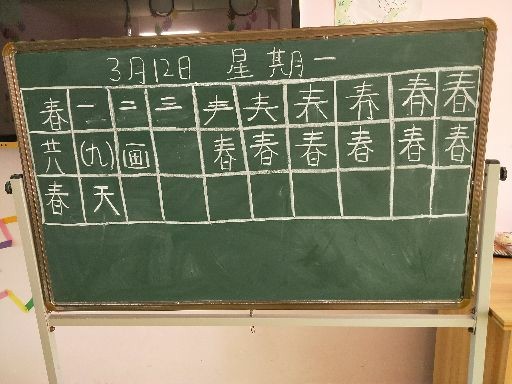 3月12日 星期一
春 一 二 三 𡗗 春 春
共 (九) 画 春 春 春 春 春 春
春 天